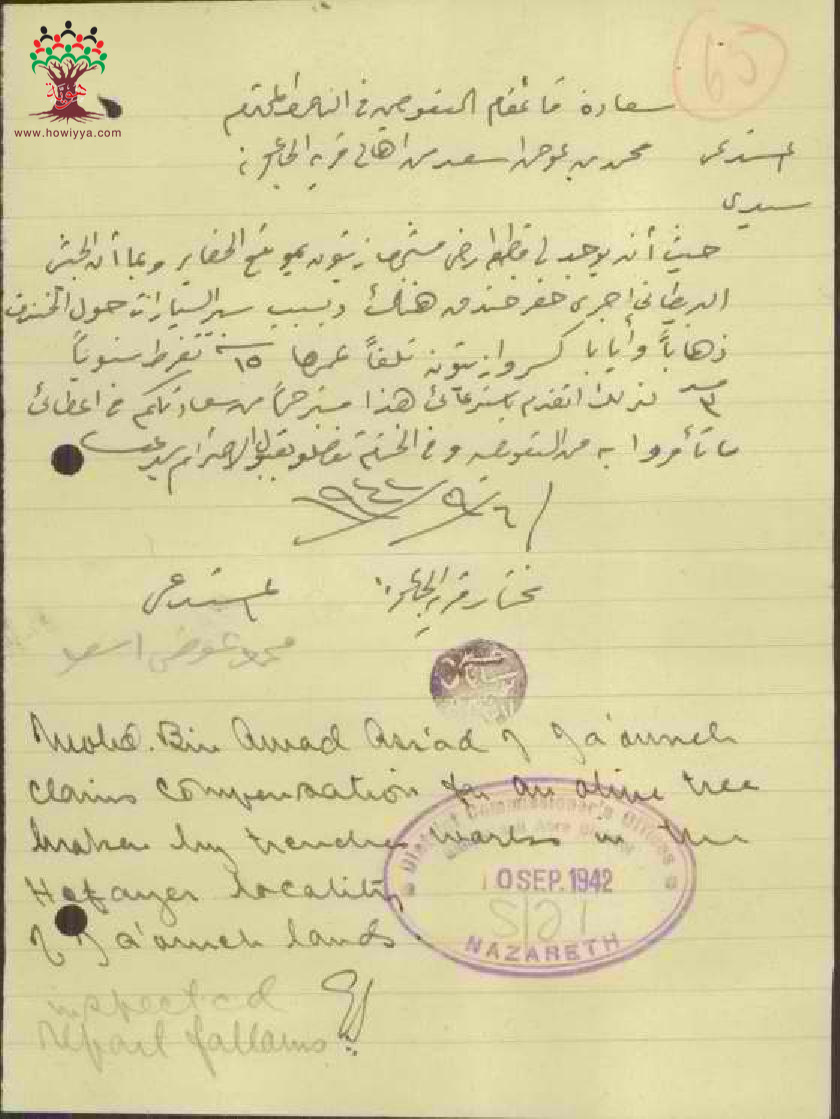 65
www.howiyya.com
سعادة قائمقام التعويض في الناصرة المحترم
المستدعي محمد بن عوض اسعد من اهالي قرية الجاعونة
سيدي
حيث أنه يوجد لي قطعة ارض مشجرة زيتون بموقع الحفاير وبما أن الجيش
البريطاني اجرى حفر خندق هناك وبسبب سير السيارات حول الخندق
ذهاباً وأيابا كسروا زيتونة تلفاً عمرها ١٥ سنة تفرط سنوياً
٣ لذلك اتقدم باستدعائي هذا مسترحماً من سعادتكم في اعطائي
ما تأمروا به من التعويض وفي الختام تفضلو بقبول الاحترام سيدي
مختار قرية الجاعونة المستدعي
محمد عوض اسعد
Mohd. Bin Awad Ass'ad of Ja'ouneh
claims compensation for an olive tree
broken by trenches works in the
Hefayer locality
of Ja'ouneh lands.
District Commissioner's Offices
10 SEP. 1942
5/21
NAZARETH
inspected
Report follows